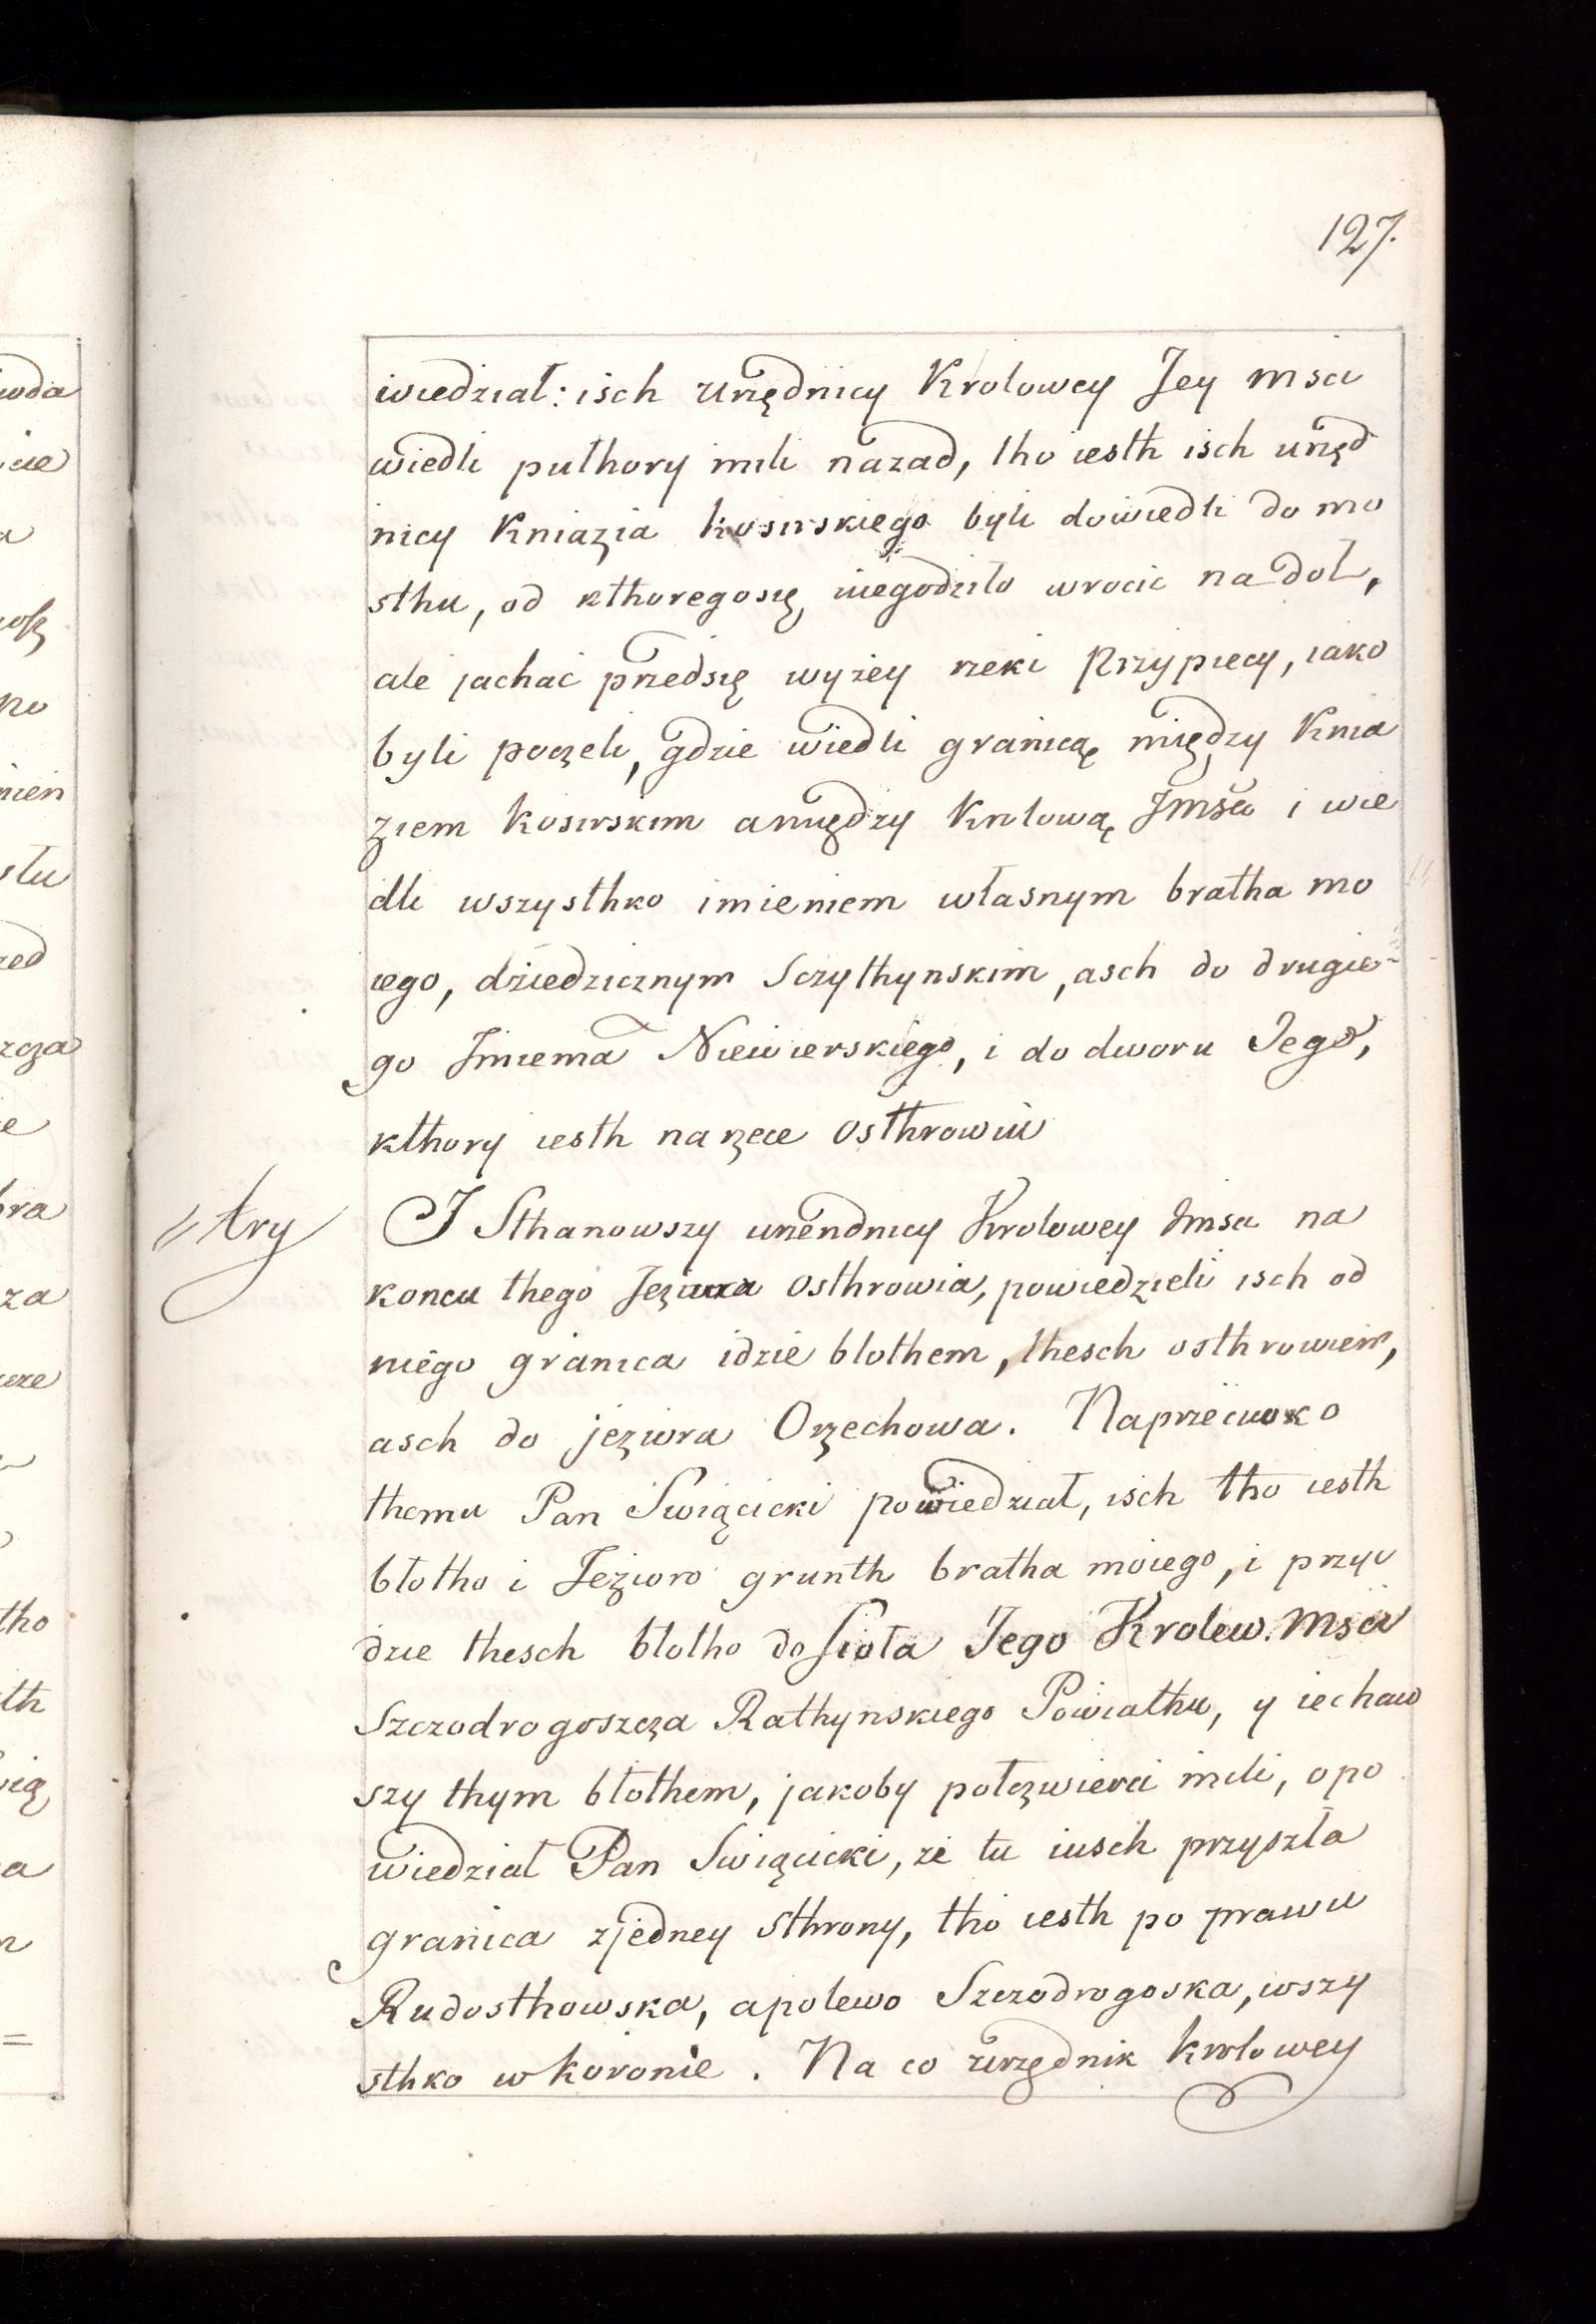 127.
wiedział: isch urzędnicy Krolowey Jey msci
wiedli puthory mili nazad, tho iesth isch urzęd
nicy Kniazia kosirskiego byli dowiedli do mo
sthu, od kthoregosię niegodziło wrocic na doł,
ale jachać przedsię wyżey rzeki Przypiecy, iako
byli poczeli, gdzie wiedli granicą między Knia
ziem kosirskim amiędzy Krolową Jmscą i wie
dli wszysthko imieniem własnym bratha mo
iego, dziedzicznym Sczythynskim, asch do drugie-
go Jmienia Niewierskiego, i do dworu Jego,
kthory iesth narzece osthrowiu
try
J Sthanowszy urzendnicy Krolowey Jmsci na
koncu thego Jeziora osthrowia, powiedzieli isch od
niego granica idzie błothem, thesch osthrowiem,
asch do jeziora Orzechowa. Naprzeciwko
themu Pan Swiącicki powiedział, isch tho iesth
błotho i Jezioro grunth bratha moiego, i przyi
dzie thesch błotho do sioła Jego Krolew. Msci
Szczodrogoszcza Rathynskiego Powiathu, y iechaw
szy thym błothem, jakoby połczwierci mili, opo
wiedział Pan Swiącicki, że tu iusch przyszła
granica zjedney sthrony, tho iesth po prawu
Rudosthowska, apolewo Szczodrogoska, wszy
sthko w koronie. Na co urzędnik krolowey